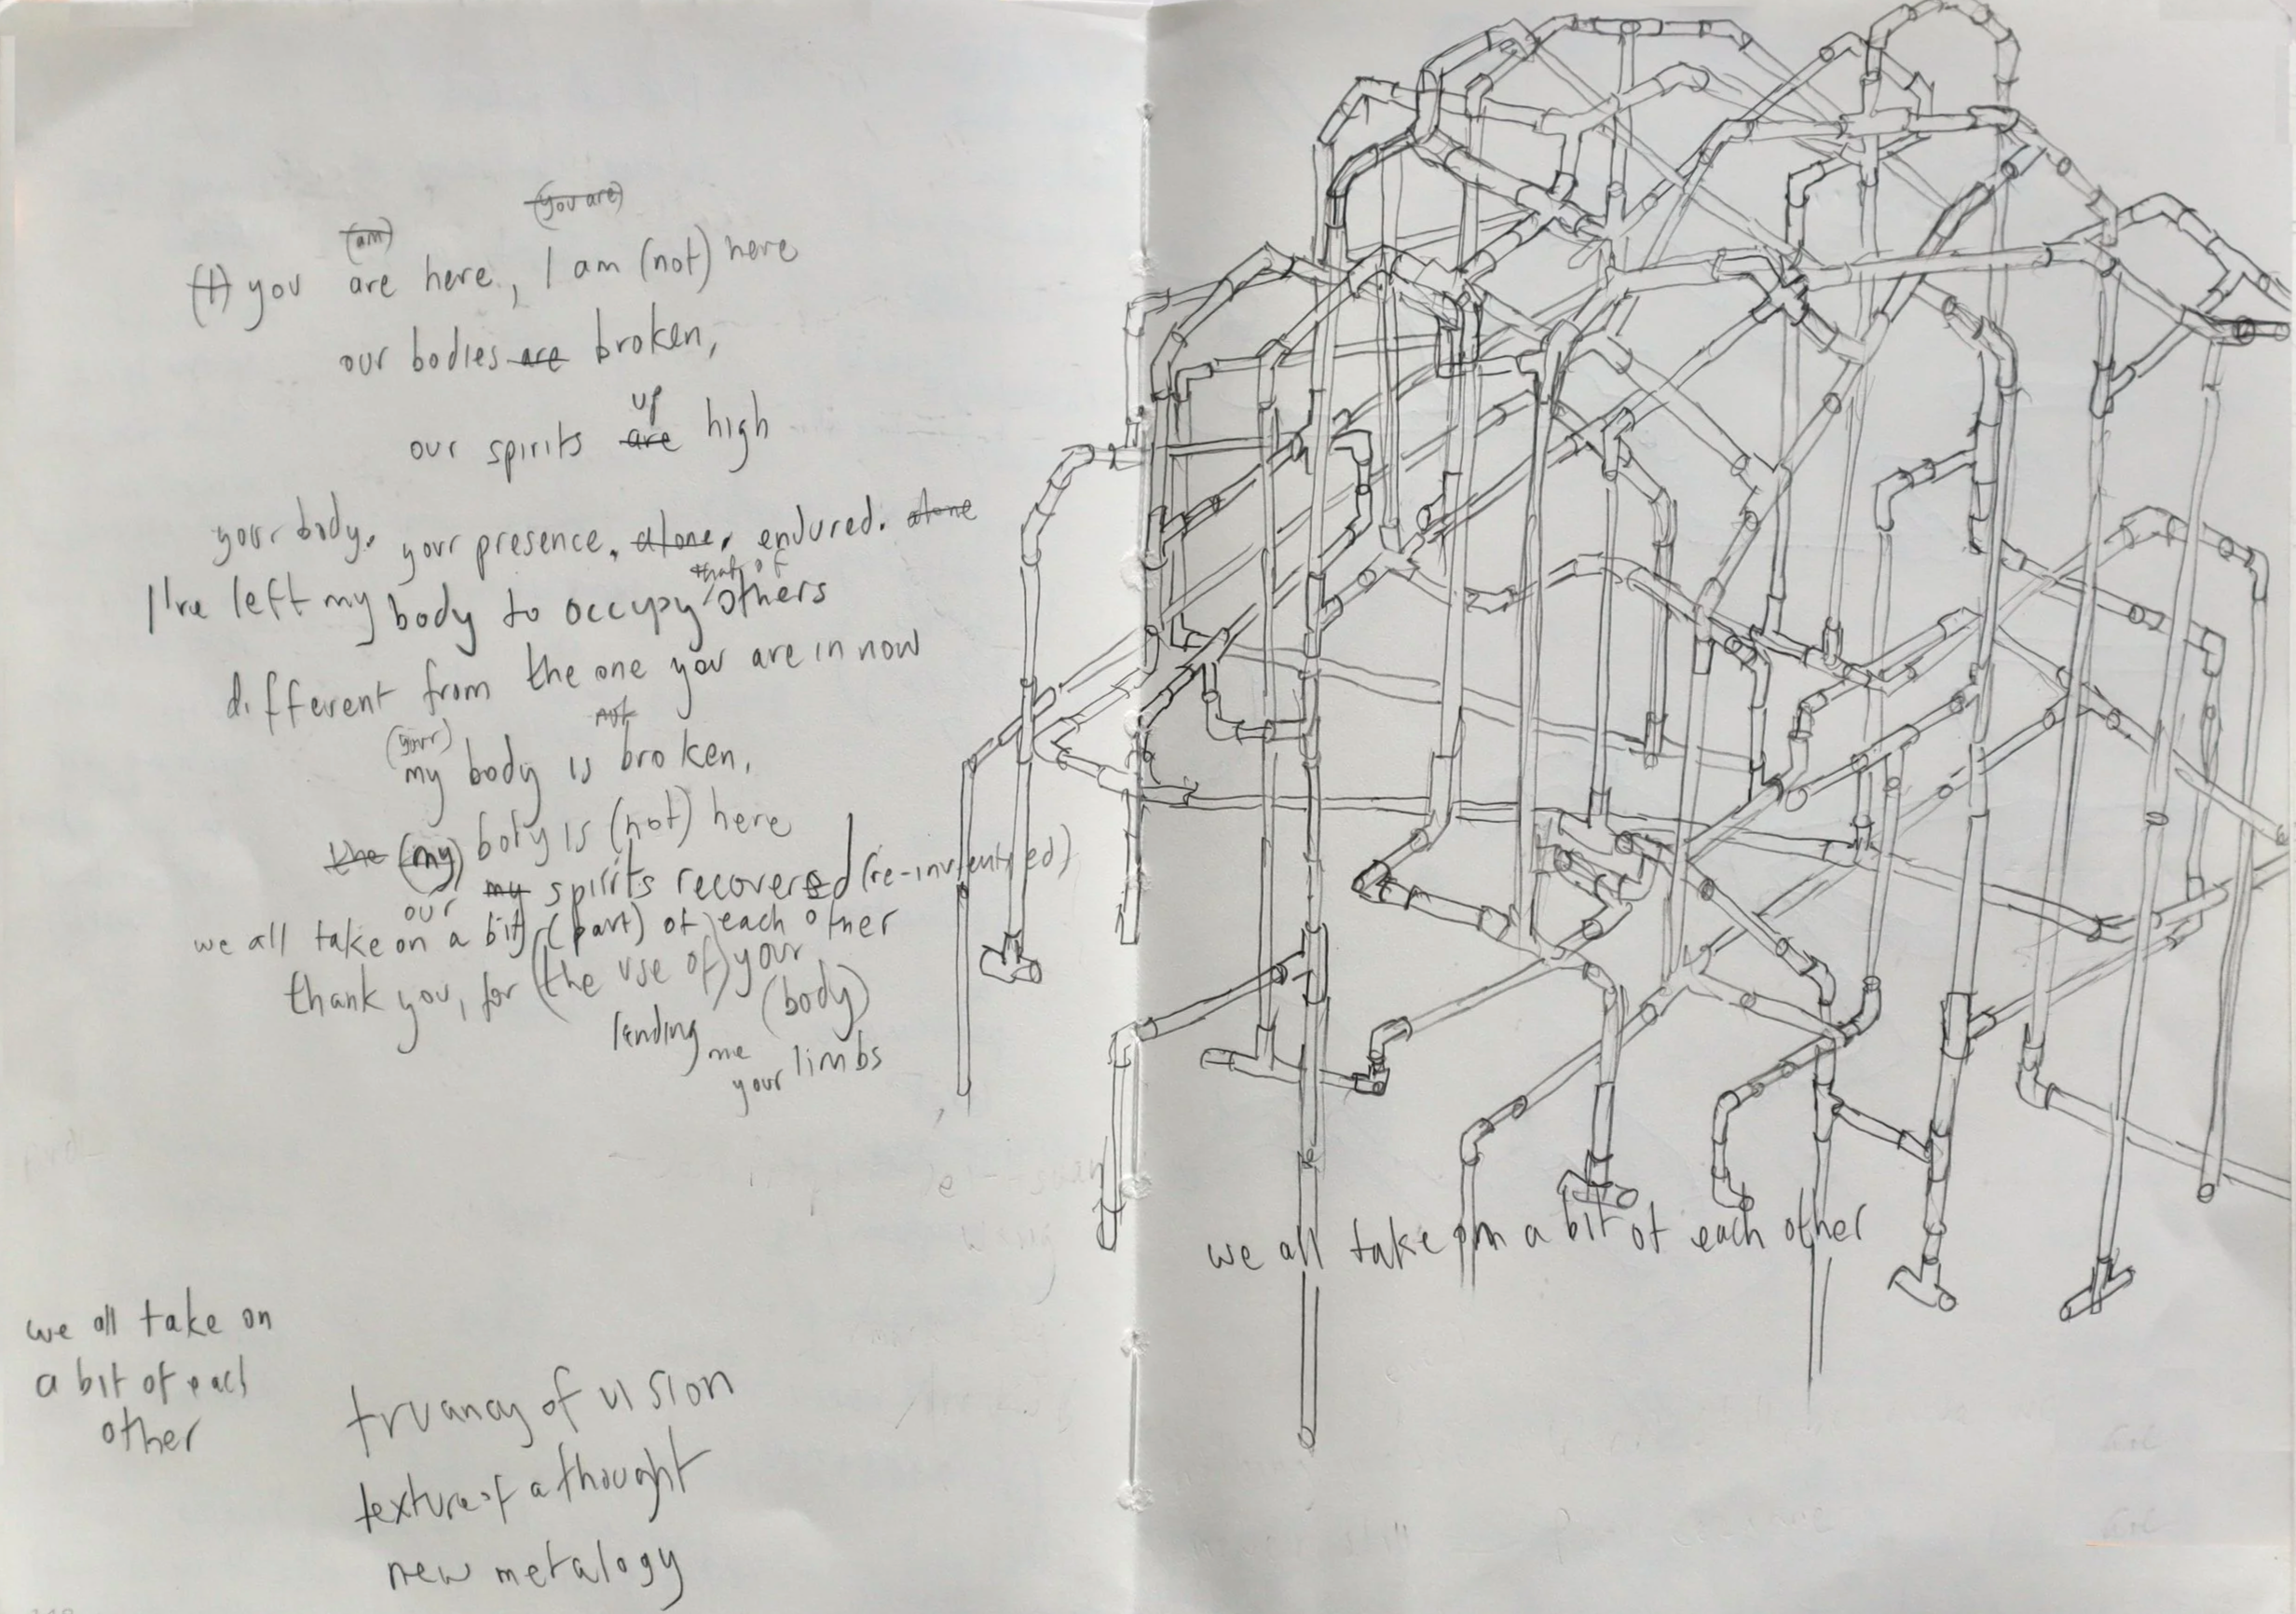 (you are)
(am)
(I) you are here, I am (not) here
our bodies are broken,
up
our spirits are high
your body. your presence. alone. endured. alone
that of
I've left my body to occupy others
different from the one you are in now
not
(your)
my body is broken,
the (my) body is (not) here
our my spirits recovered (re-invented)
we all take on a bit (part) of each other
thank you, for (the use of) your
(body)
lending me
your limbs
we all take on
a bit of each
other
truancy of vision
texture of a thought
new metalogy
we all take on a bit of each other